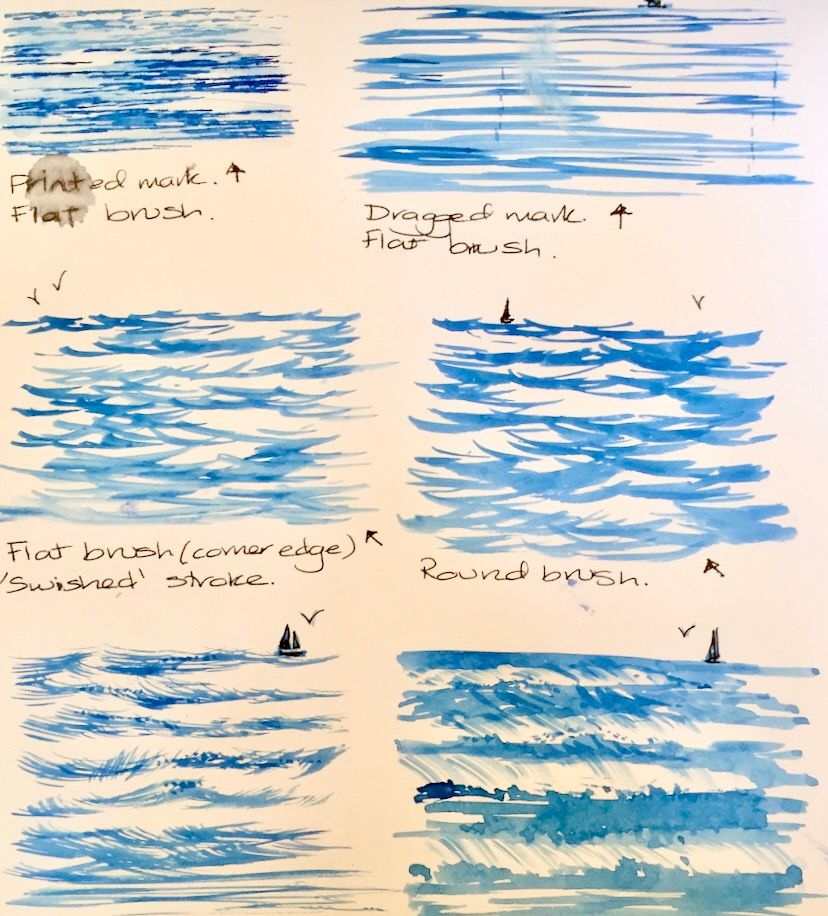 Printed mark.
Flat brush.
Dragged mark.
Flat brush.
Flat brush (corner edge)
'Swished' stroke.
Round brush.